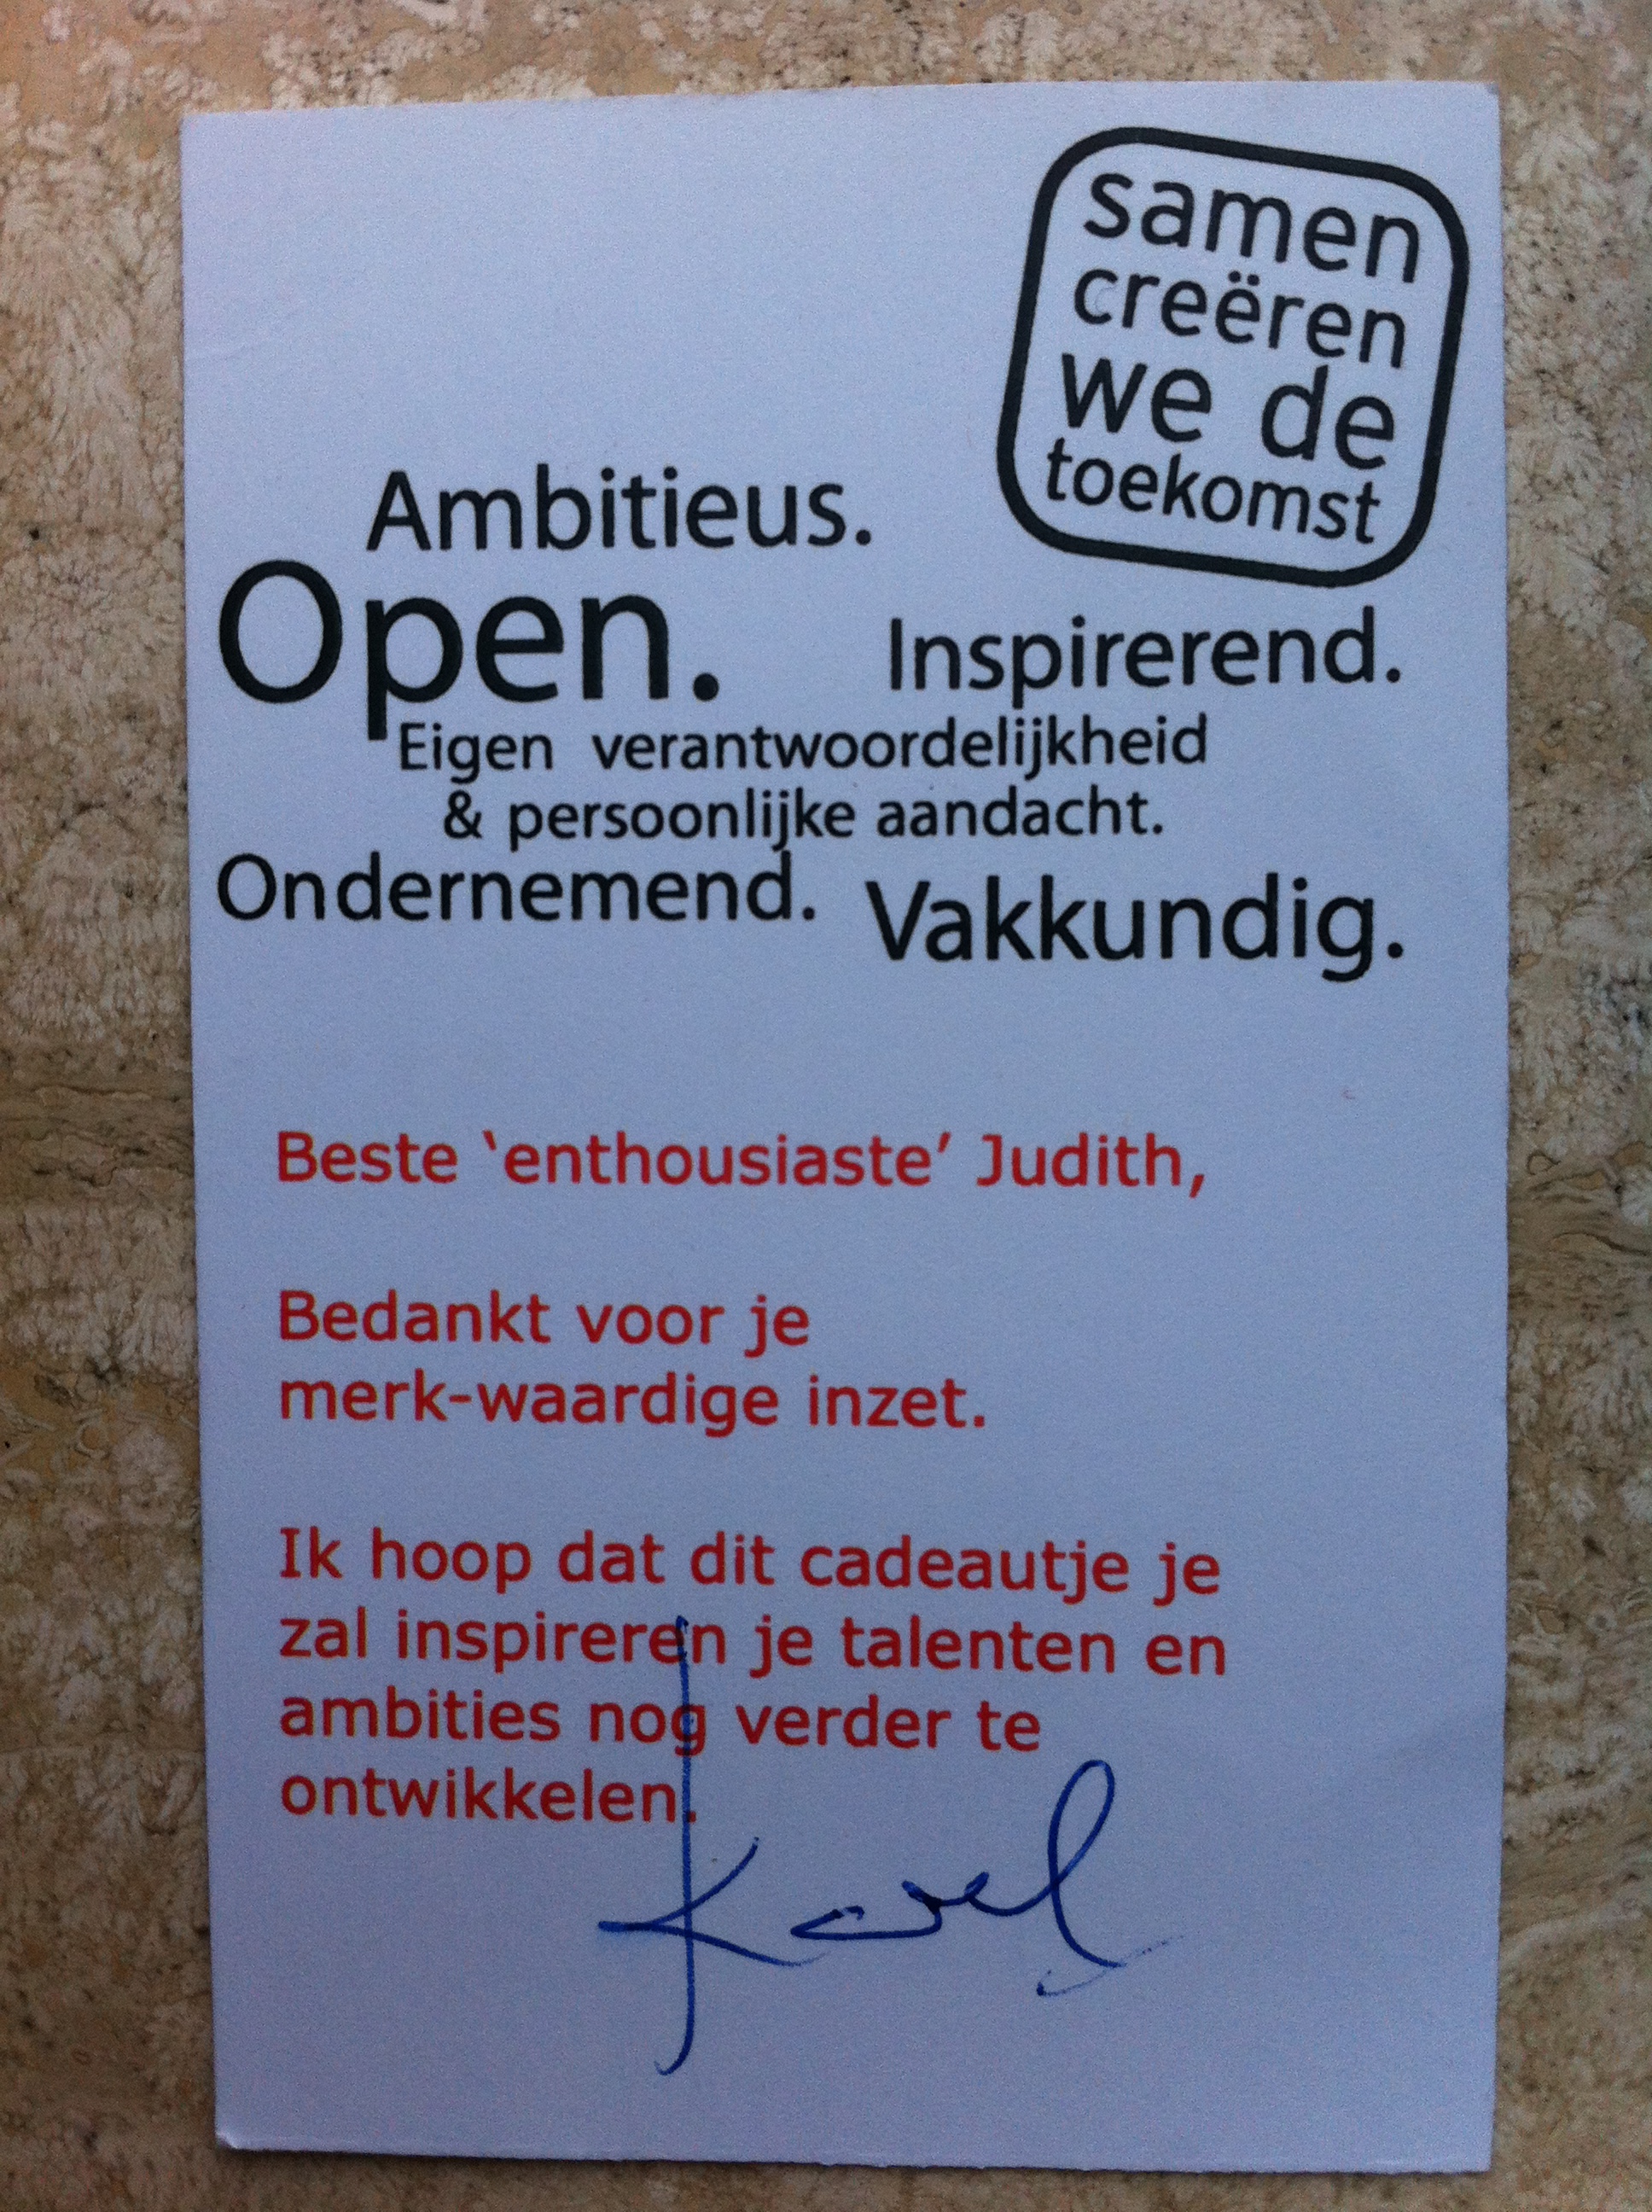 samen
creëren
we de
toekomst
Ambitieus.
Open. Inspirerend.
Eigen verantwoordelijkheid
& persoonlijke aandacht.
Ondernemend. Vakkundig.
Beste ‘enthousiaste’ Judith,
Bedankt voor je
merk-waardige inzet.
Ik hoop dat dit cadeautje je
zal inspireren je talenten en
ambities nog verder te
ontwikkelen.
Karel